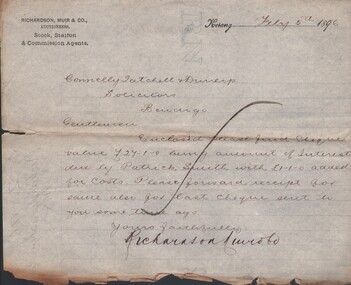 RICHARDSON, MUIR & CO.,
AUCTIONEERS,
Stock, Station
& Commission Agents.
Kerang, Feby 5th 1896
Connelly Tatchell & Dunlop
Solicitors
Bendigo
Gentlemen
Enclosed please find Cheque
value £27.1.0 being amount of Interest
due by Patrick Smith with £1.1.0 added
for costs. Please forward receipt for
same also for last Cheque sent to
you some time ago
Yours faithfully
Richardson Muir & Co